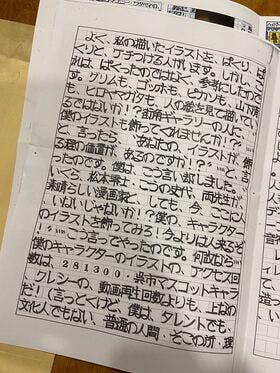 よく、私の描いたイラストを、ぱくり、ぱ
くりと、ケチつける人がいます。しかし、こ
れは、ぱくったのではなく、参考にしたので
す。グリムも、ゴッホも、ピカソも、山下清
も、ヒロヤマガタも、人の絵を見て描いてい
るではないか!?街角ギャラリーの人に、
僕のイラストも飾ってくれますか!?
と、言ったら、あなたの、イラスト、か
ざる程の価値が、あるのですか!?と言
ったのです。僕は、ここ言い返しました。
いくら、松本零士、この史が、両先生が
素晴らしい漫画家と、しても、ここに人
いないじゃないか!?僕の、キャラクター
のイラストを飾ってみろ!今よりは人来るぞ
!…ここ言ってやったのです。何故なら
僕のキャラクターのイラストの、アクセス回
数は、281300.呉市マスコットキャラ
クレシーの、動画再生回数よりも、上なの
だ!(言っとくけど、僕は、タレントでも、
文化人でもない、普通の人間.そこの所.理